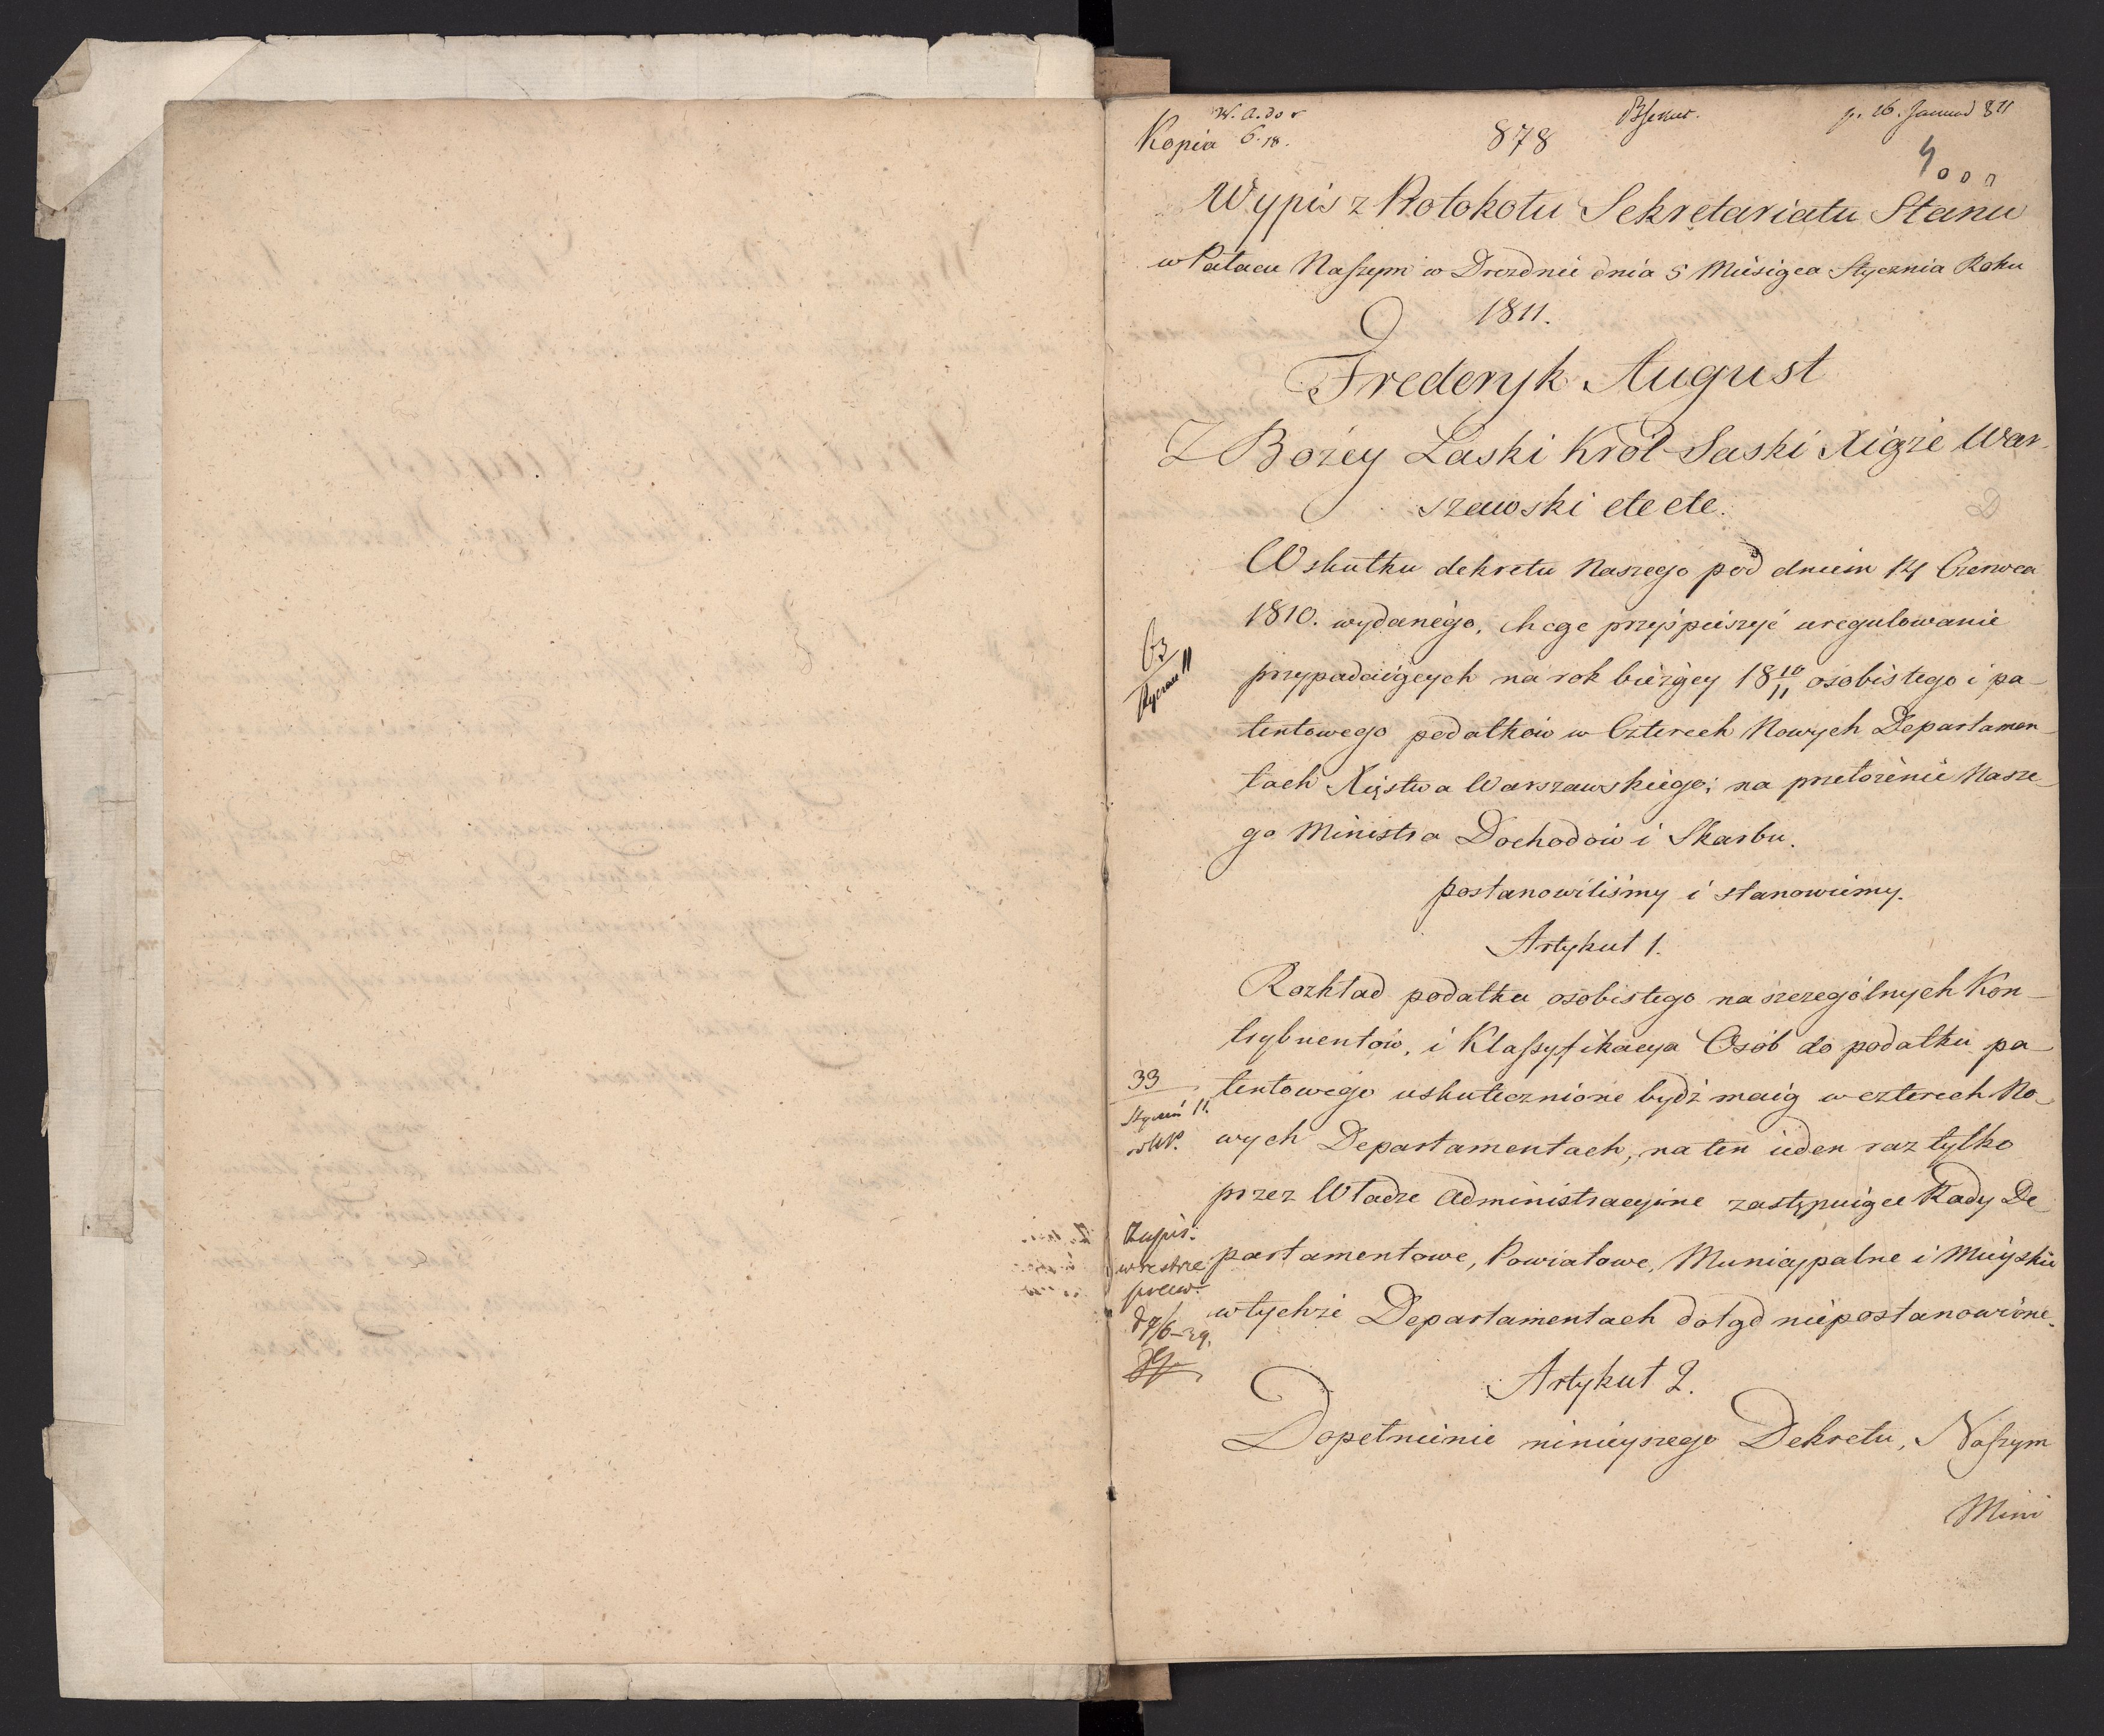 Kopia
878
p. 16. Januar 811
Wypis z Protokołu Sekretariatu Stanu
w Pałacu Naszym w Dreznie dnia 5 Miesiąca Stycznia Roku
1811.
Frederyk August
Z Bożey Łaski Król Saski Xiąże War-
szawski etc etc.
W skutku dekretu Naszego pod dniem 14 Czerwca
1810. wydanego, chcąc przyśpieszyć uregulowanie
63
przypadaiących na rok bieżący 18 10/11 osobistego i pa-
tentowego podatków w Czterech Nowych Departamen-
tach Xięstwa Warszawskiego; na przełożenie Nasze-
go Ministra Dochodów i Skarbu.
postanowiliśmy i stanowiemy.
Artykuł 1.
Rozkład podatku osobistego na szczególnych Kon-
trybuentów, i Klassyfikacya Osób do podatku pa-
33
tentowego uskutecznione bydź maią w czterech No-
Styczeń 11.
wych Departamentach, na ten ieden raz tylko
przez Władze Administracyine zastępuiące Rady De-
Zapis.
partamentowe, Powiatowe, Municypalne i Mieyskie
w tychże Departamentach dotąd niepostanowione.
Artykuł 2.
Dopełnienie ninieyszego Dekretu, Naszym
Mini